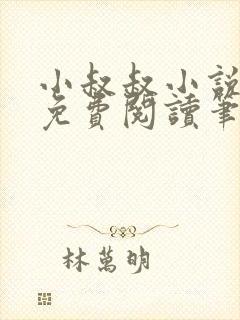 小叔叔小說
免費閱讀筆
林萬明